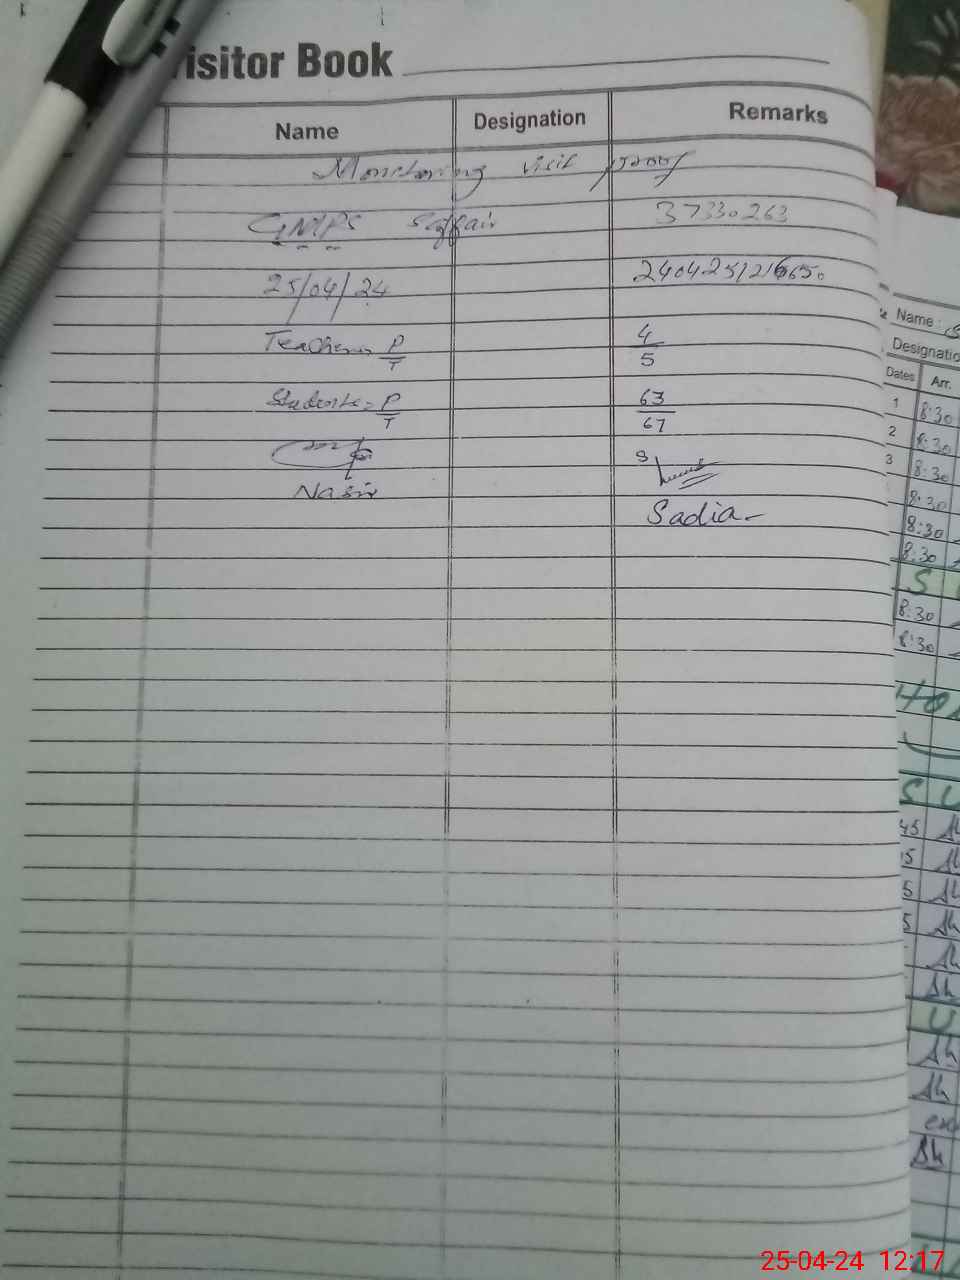 isitor Book
Name Designation Remarks
Monitoring visit proof
GMPS Saffair 37330263
25/04/24 2404251216650
Teachers P/T 4/5
Students = P/T 63/67
Nasir
Sadia
Name :
Designatio
Dates Arr.
1 8:30
2 8:30
3 8:30
8:30
8:30
8:30
S
8:30
8:30
S U
45
5
5
5
U
25-04-24 12:17